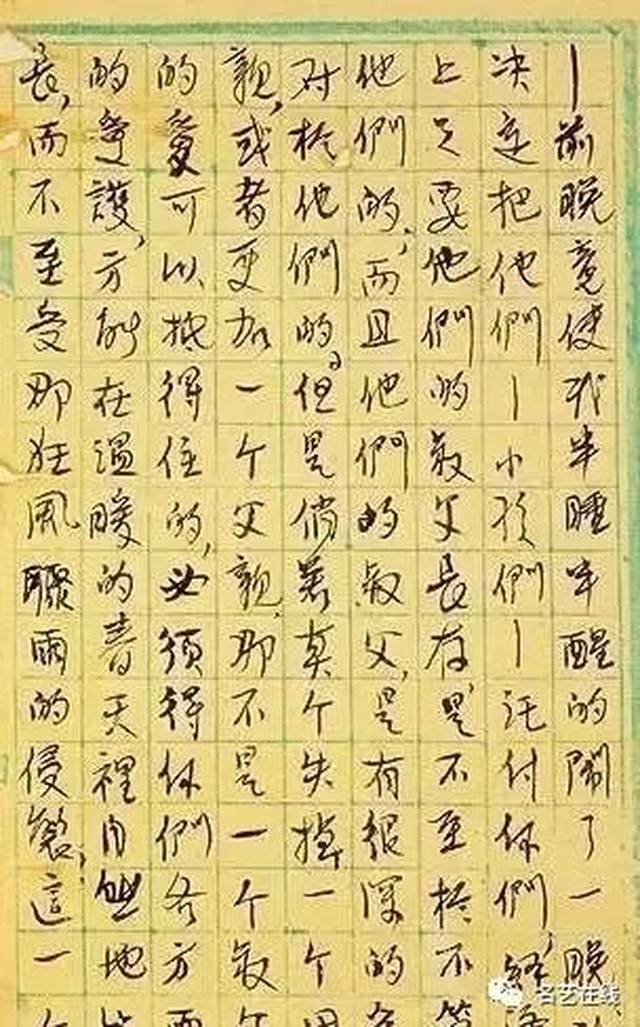 —前晚竟使我半睡半醒的鬧了一晚
决定把他們—小孩們—託付你們，經
上只要他們的叔父長存，是不至於不
他們的，而且他們的叔父，是有很深的
对於他們的。但是倘若真个失掉一个
親，或者更加一个父親，那不是一个叔
的愛可以抵得住的，必須得你們各方
的愛護，方能在溫暖的春天裡自然地
長，而不至受那狂風驟雨的侵襲，這一
名艺在线